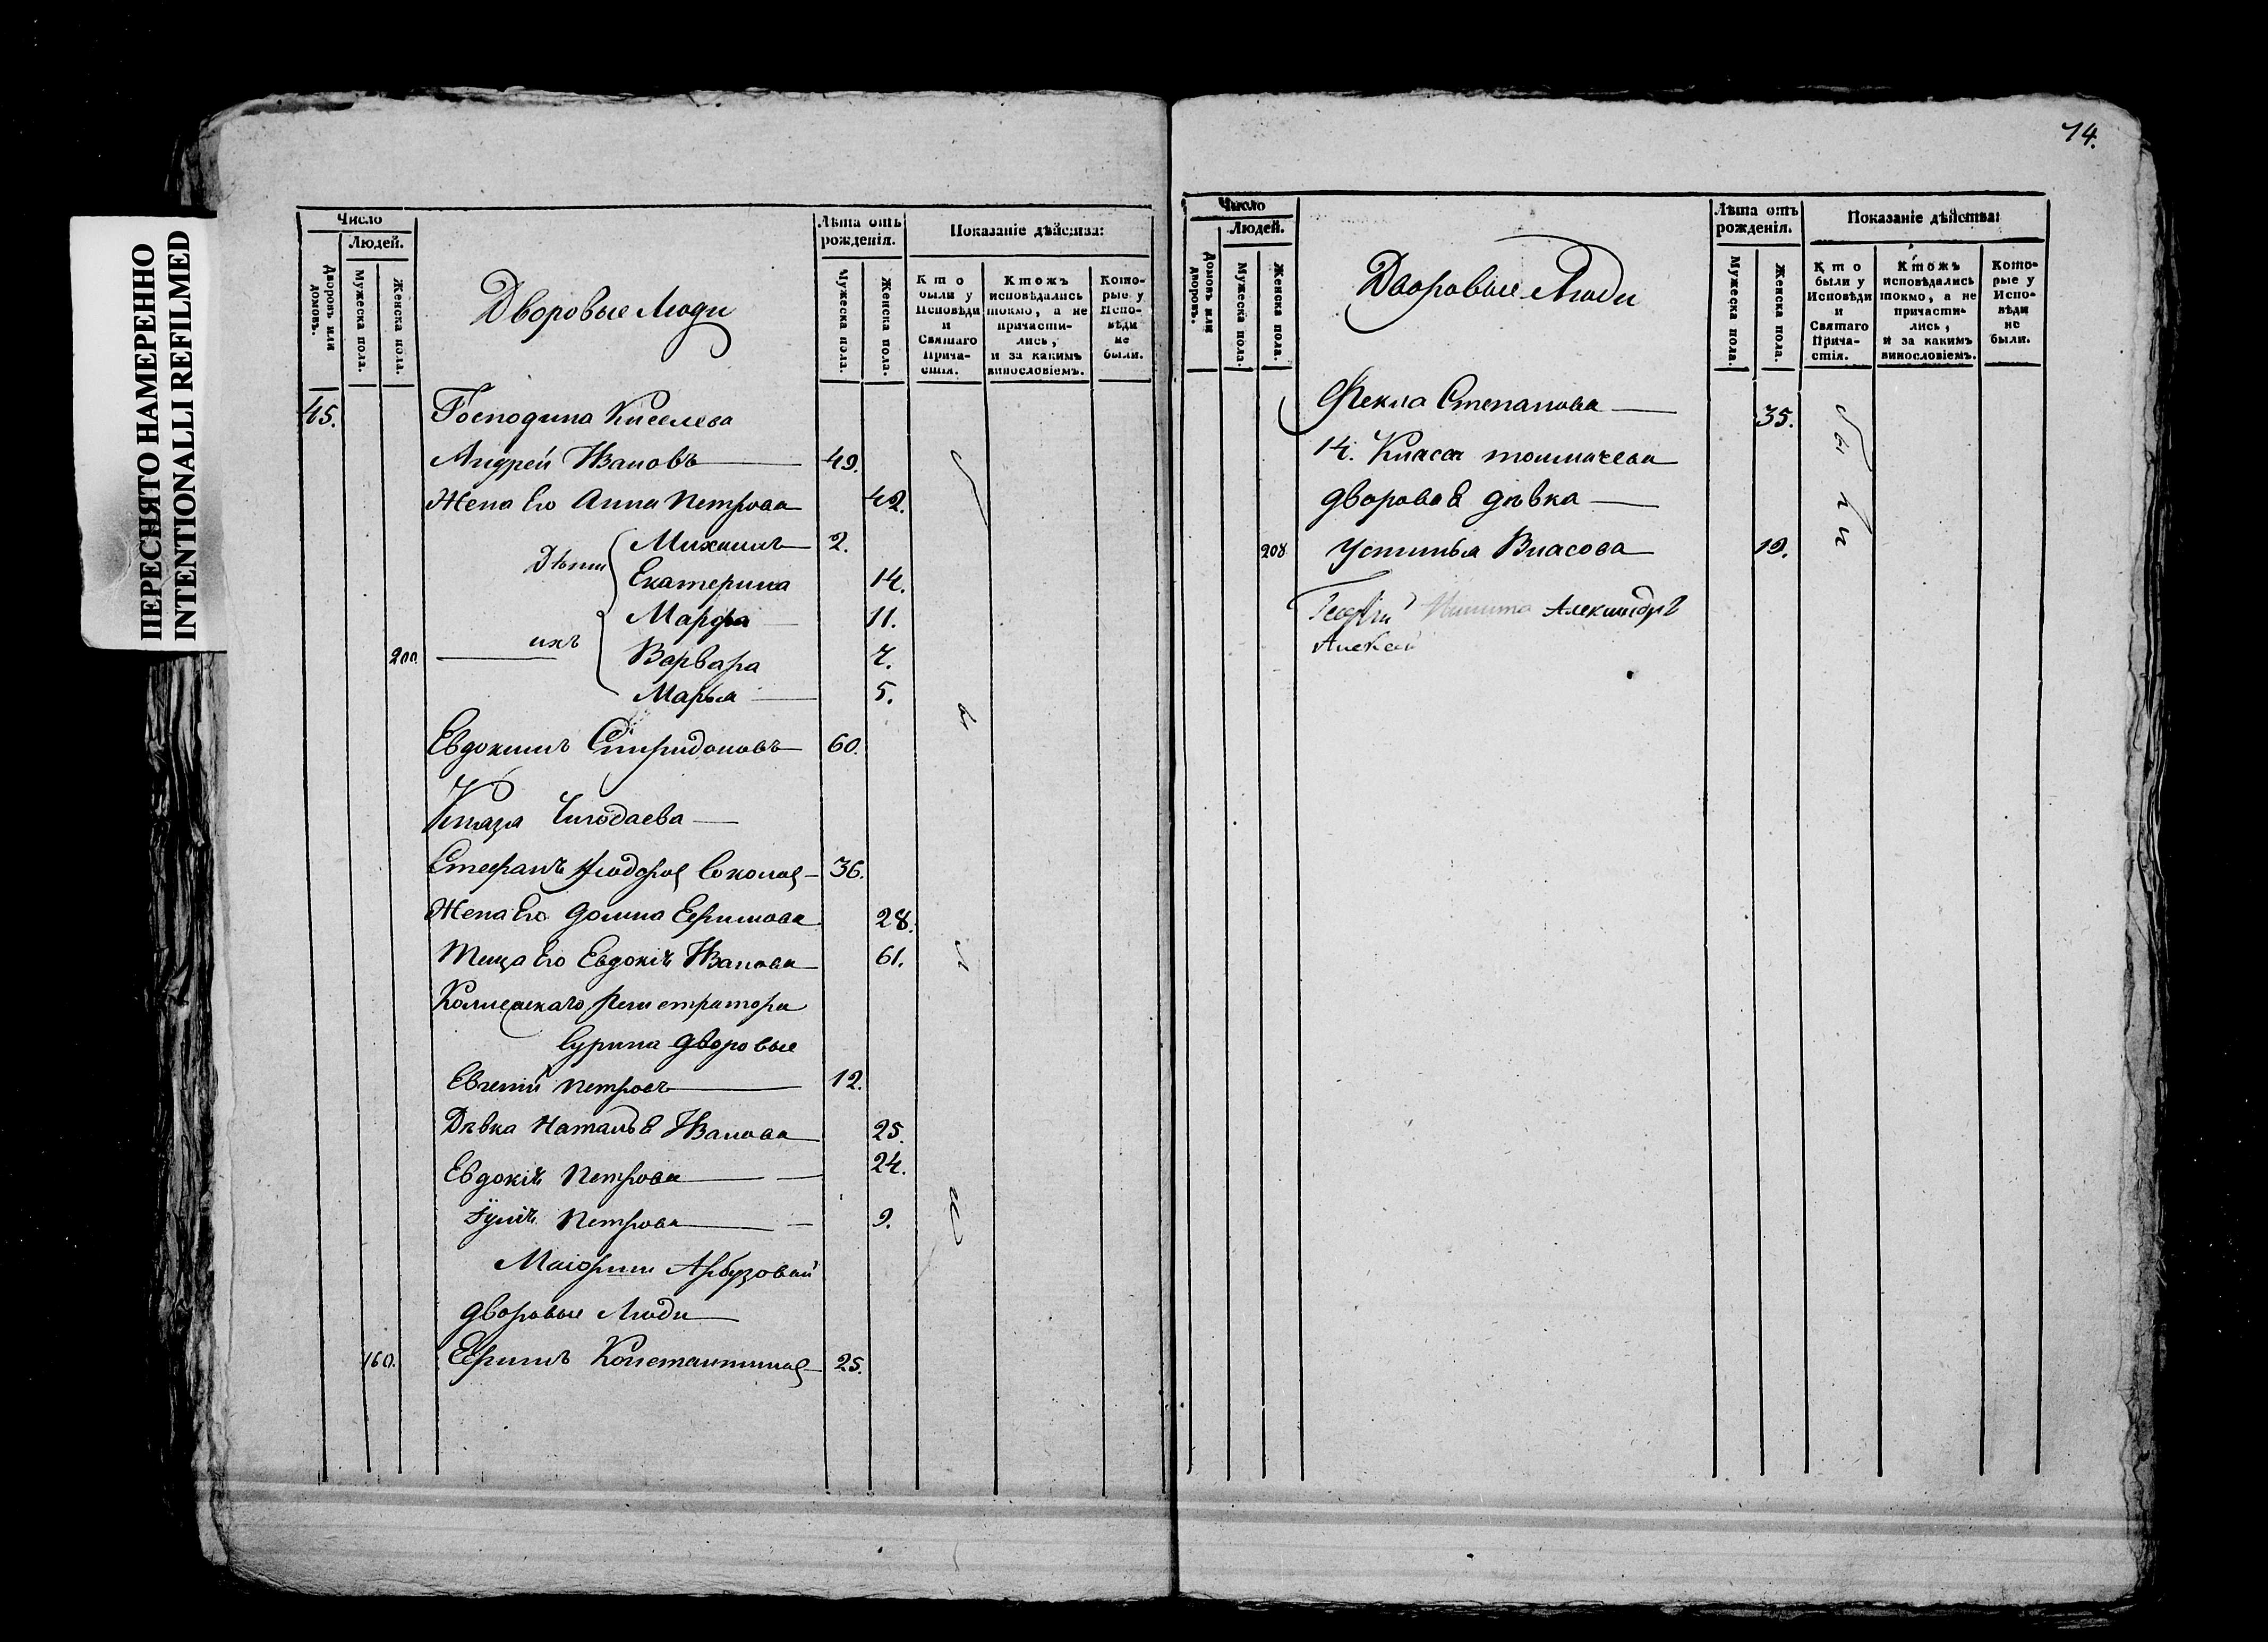 ПЕРЕСНЯТО НАМЕРЕННО
INTENTIONALLI REFILMED
Число
Людей.
Дворовъ или домовъ.
Мужеска пола.
Женска пола.
Дворовые Люди
Лѣта отъ рожденія.
Мужеска пола.
Женска пола.
Показаніе дѣйства:
Кто были у Исповѣди и Святаго Прича-стія.
Ктожъ исповѣдались токмо, а не причасти-лись, и за какимъ винословіемъ.
Кото-рые у Испо-вѣди не были.
45. Господина Киселева
Андрей Ивановъ 49.
Жена Его Анна Петрова 42.
Дѣти Михаилъ 2.
Екатерина 14.
Марфа 11.
200. ихъ Варвара 7.
Марья 5.
Евдокимъ Спиридоновъ 60.
Князя Чегодаева
Стефанъ Соколов 36.
Жена Его Домна Ефимова 28.
Теща Его Евдокія Иванова 61.
Коллежскаго Регистратора
Сурина дворовые
Евгеній Петровъ 12.
Дѣвка Наталья Иванова 25.
Евдокія Петрова 24.
Іулія Петрова 9.
Маіорши Арбузовой
дворовые Люди
160. Ефимъ Константинов 25.
были
74.
Число
Людей.
Домовъ или дворовъ.
Мужеска пола.
Женска пола.
Дворовые Люди
Лѣта отъ рожденія.
Мужеска пола.
Женска пола.
Показаніе дѣйства:
Кто были у Исповѣди и Святаго Прича-стія.
Ктожъ исповѣдались токмо, а не причасти-лись, и за какимъ винословіемъ.
Кото-рые у Испо-вѣди не были.
Фекла Степанова 35.
14. Класса толмачева
дворовая дѣвка
208 Устинья Власова 19.
Георгій Никита Александръ
Алексей
были